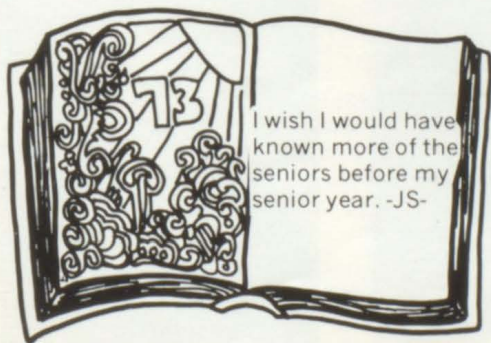 73
I wish I would have
known more of the
seniors before my
senior year. -JS-